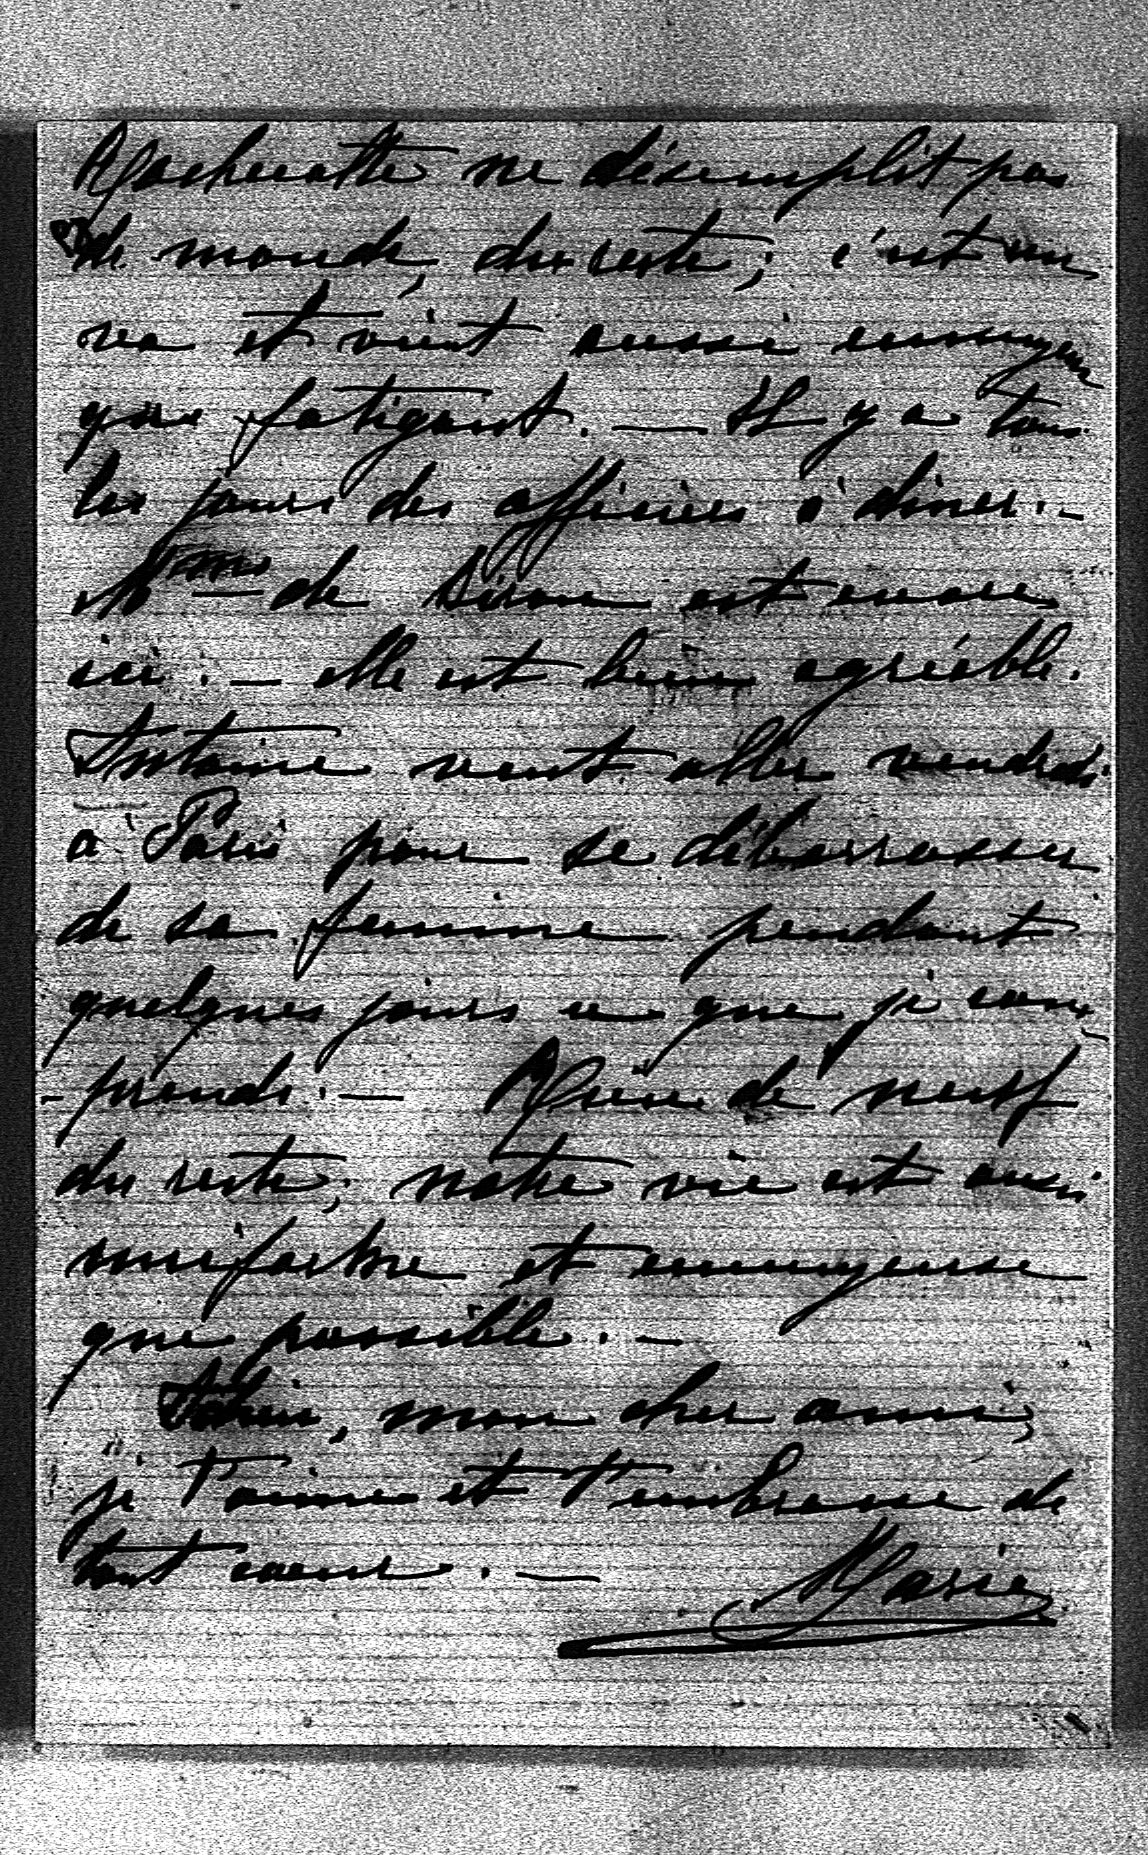 Rochecotte ne désemplit pas
de monde, du reste; c'est un
va et vient aussi ennuyeux
que fatigant. — Il y a tous
les jours des officiers à dîner. -
Mme de est encore
ici. — elle est bien agréable.
Antoine veut aller vendredi
à Paris pour se débarrasser
de sa femme pendant
quelques jours ce que je com-
-prends. — Rien de neuf
du reste; notre vie est aussi
uniforme et ennuyeuse
que possible. —
Adieu, mon cher ami,
je t'aime et t'embrasse de
tout coeur. —
Marie